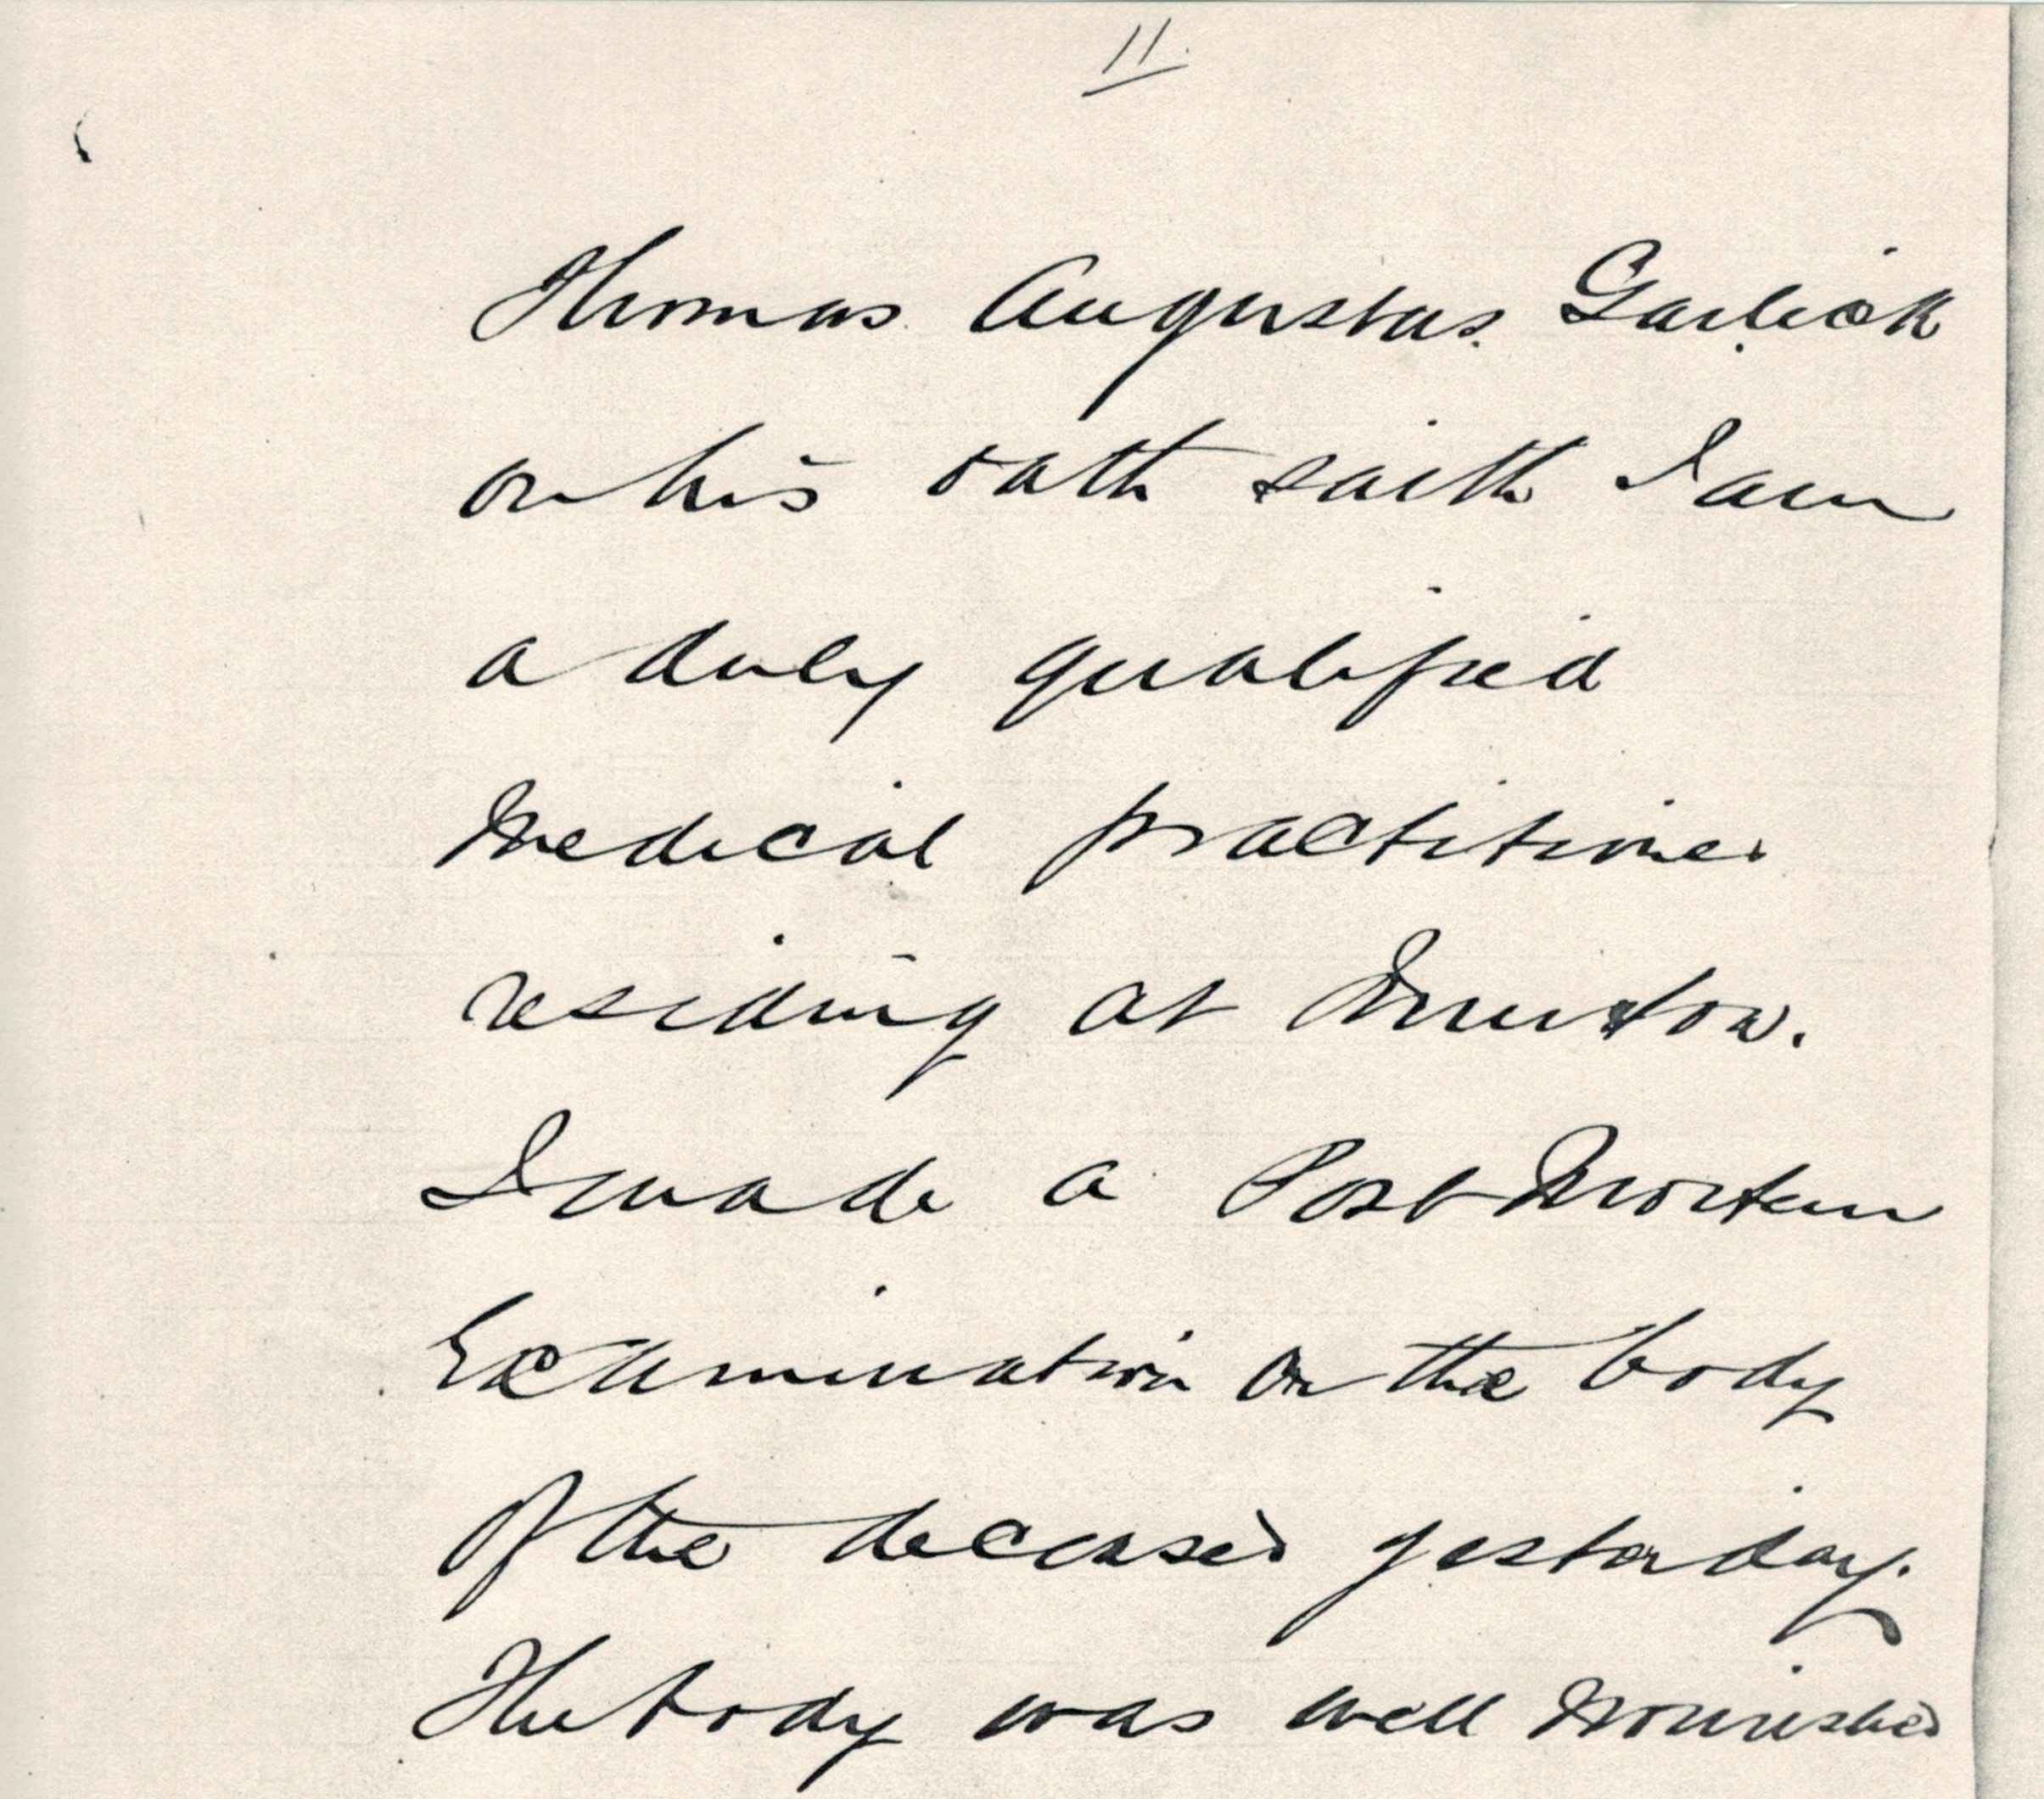 11.
Thomas Augustus Garlick
on his oath saith I am
a duly qualified
Medical practitioner
residing at
I made a Post Mortem
Examination on the body
Of the deceased yesterday.
The body was well Nourished